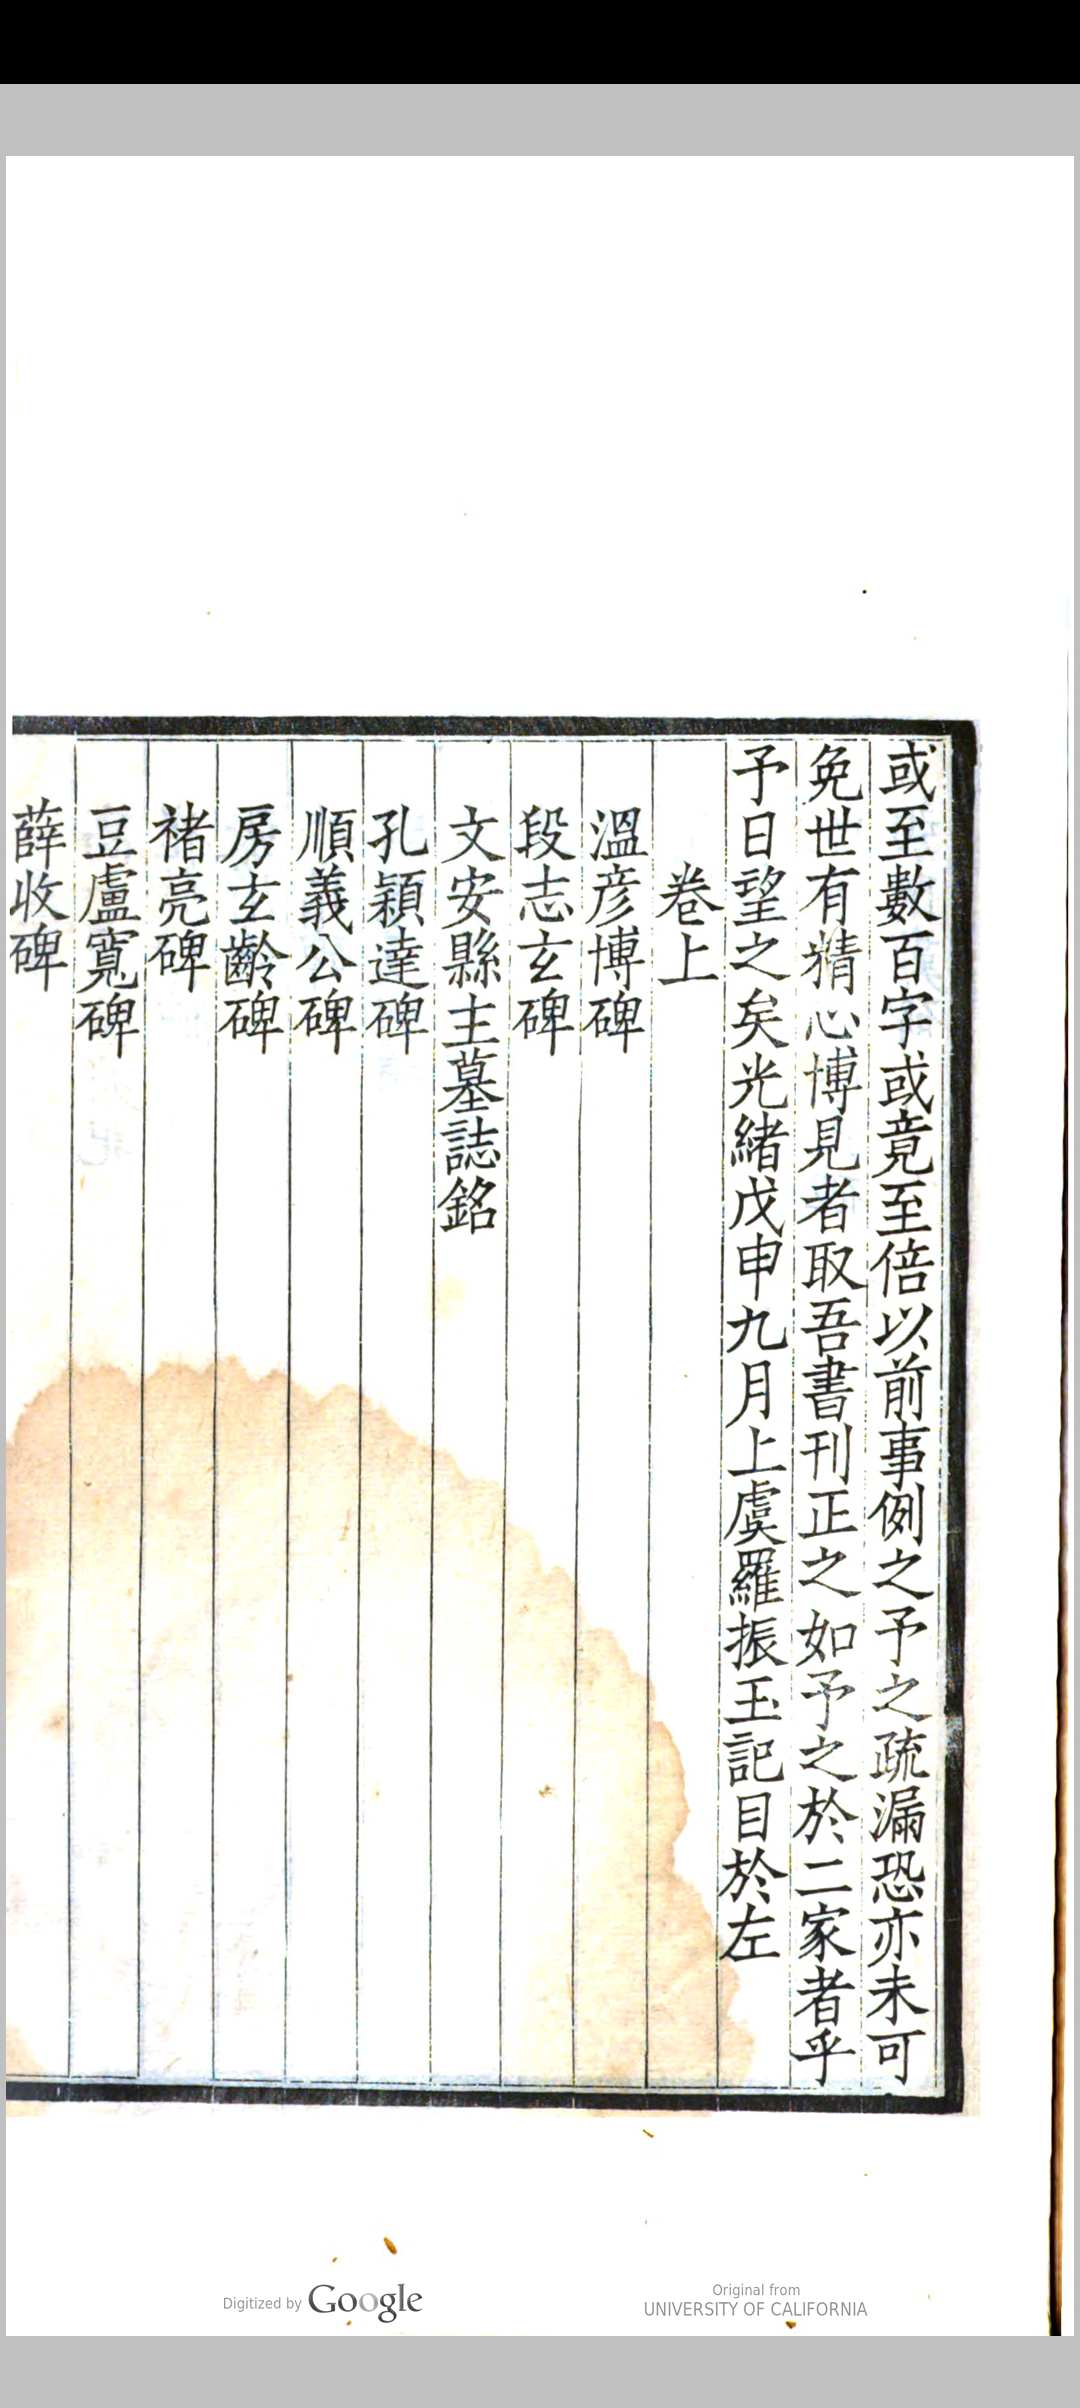 或至數百字或竟至倍以前事例之予之疏漏恐亦未可
免世有精心博見者取吾書刊正之如予之於二家者乎
予日望之矣光緒戊申九月上虞羅振玉記目於左
卷上
溫彦博碑
段志玄碑
文安縣主墓誌銘
孔穎達碑
順義公碑
房玄齡碑
褚亮碑
豆盧寬碑
薛收碑
Digitized by Google
Original from
UNIVERSITY OF CALIFORNIA